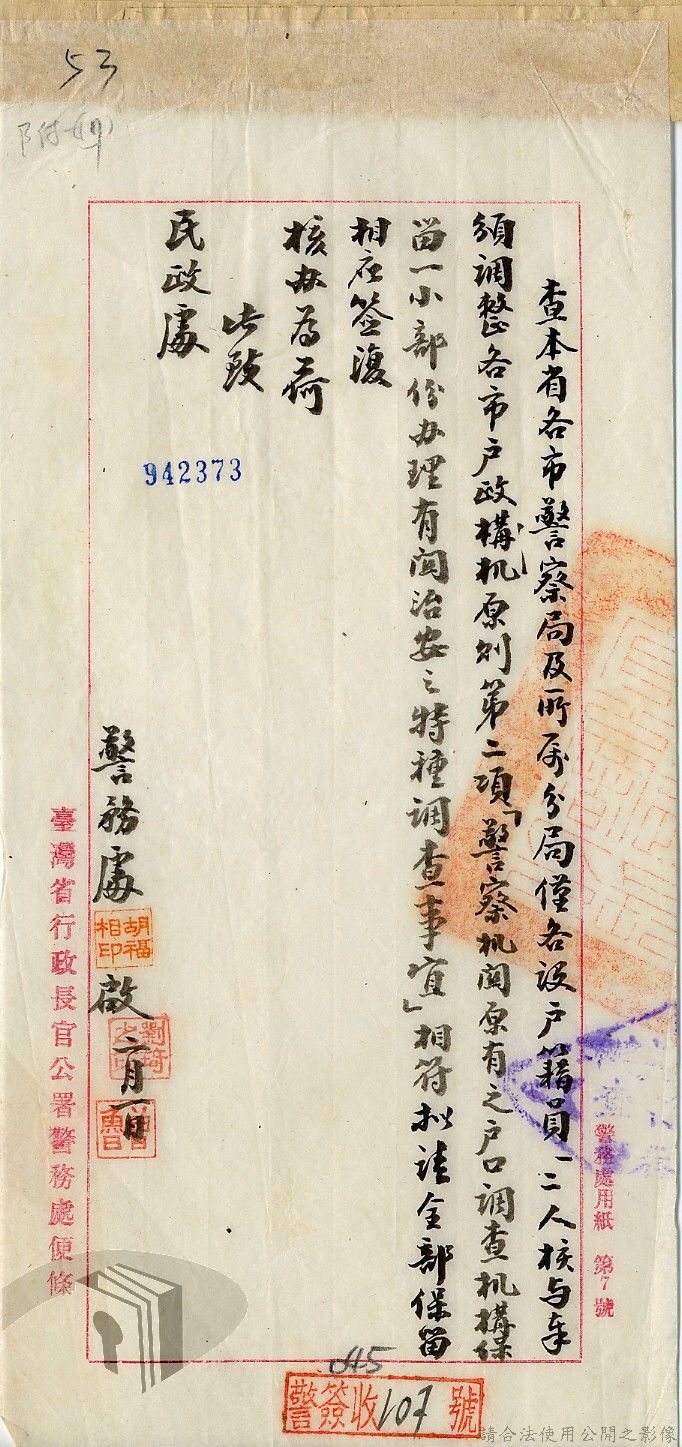 53
附(17)
查本省各市警察局及所屬分局僅各設户籍員一二人核与奉
頒調整各市户政構机原則第二項「警察机関原有之户口調查机構保
留一小部份办理有関治安之特種調查事宜」相符拟請全部保留
相应签復
核办為荷
此致
民政處
942373
警務處
胡福相印
啟
二月一日
臺灣省行政長官公署警務處便條
警務處用紙 第7號
A5
警簽收107號
請合法使用公開之影像